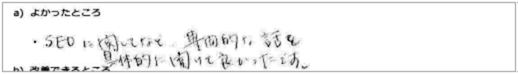 a) よかったところ
・SEO に関してなど、具体的な話を
具体的に聞けて良かったです。
b) 改善できるところ